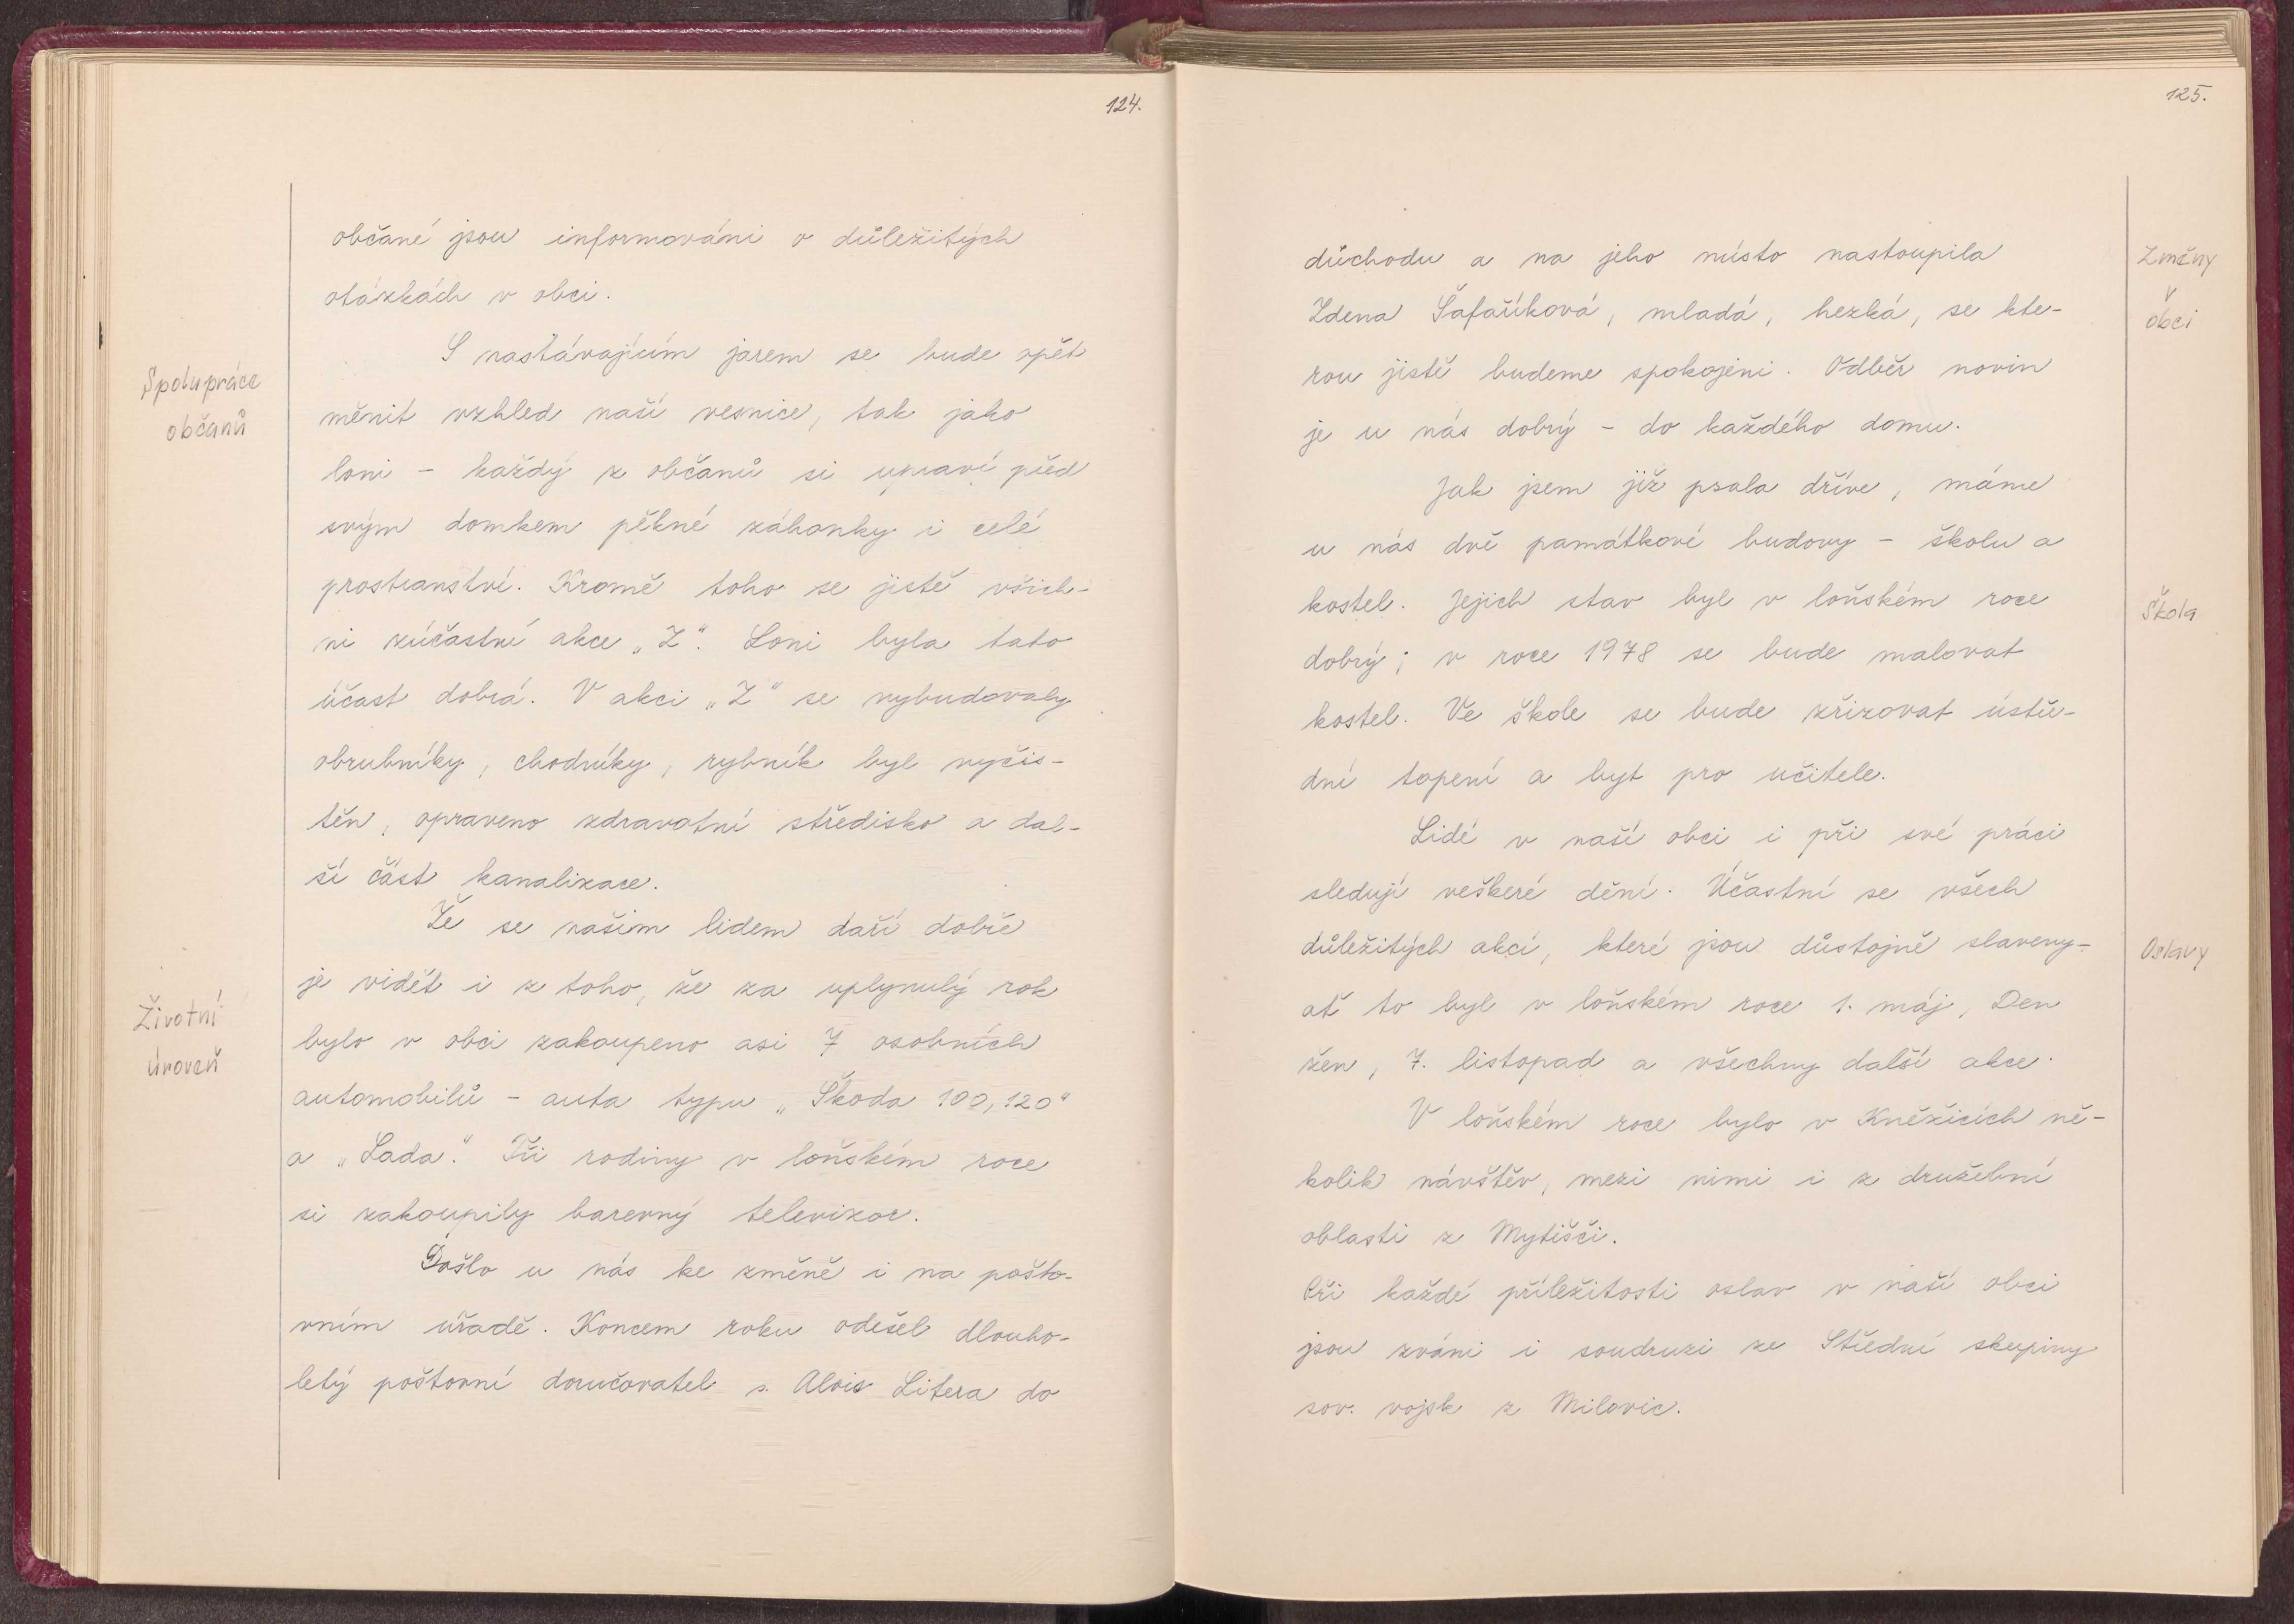 124.
občané jsou informováni o důležitých
otázkách v obci.
S nastávajícím jarem se bude opět
Spolupráce
občanů
měnit vzhled naší vesnice, tak jako
loni - každý z občanů si upraví před
svým domkem pěkné záhonky i celé
prostranství. Kromě toho se jistě všich-
ni zúčastní akce „Z“. Loni byla tato
účast dobrá. V akci „Z“ se vybudovaly
obrubníky, chodníky, rybník byl vyčis-
těn, opraveno zdravotní středisko a dal-
ší část kanalizace.
Že se našim lidem daří dobře
je vidět i z toho, že za uplynulý rok
Životní
úroveň
bylo v obci zakoupeno asi 7 osobních
automobilů - auta typu „Škoda 100, 120“
a „Lada“. Tři rodiny v loňském roce
si zakoupily barevný televizor.
Došlo u nás ke změně i na pošto-
vním úřadě. Koncem roku odešel dlouho-
letý poštovní doručovatel s. Alois Litera do
125.
důchodu a na jeho místo nastoupila
Změny
v
obci
Zdena Šafaříková, mladá, hezká, se kte-
rou jistě budeme spokojeni. Odběr novin
je u nás dobrý - do každého domu.
Jak jsem již psala dříve, máme
u nás dvě památkové budovy - školu a
kostel. Jejich stav byl v loňském roce
Škola
dobrý; v roce 1978 se bude malovat
kostel. Ve škole se bude zřizovat ústře-
dní topení a byt pro učitele.
Lidé v naší obci i při své práci
sledují veškeré dění. Účastní se všech
důležitých akcí, které jsou důstojně slaveny-
Oslavy
ať to byl v loňském roce 1. máj, Den
žen, 7. listopad a všechny další akce.
V loňském roce bylo v Kněžicích ně-
kolik návštěv, mezi nimi i z družební
oblasti z Mytišči.
Při každé příležitosti oslav v naší obci
jsou zváni i soudruzi ze Střední skupiny
sov. vojsk z Milovic.